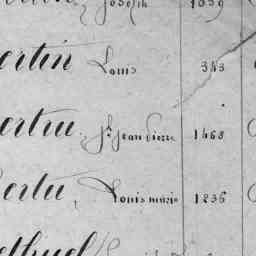 Joseph 1059
ertin Louis 343
ertru, Jn Jean Pierre 1468
ertu, Louis marie 1236
ethuel